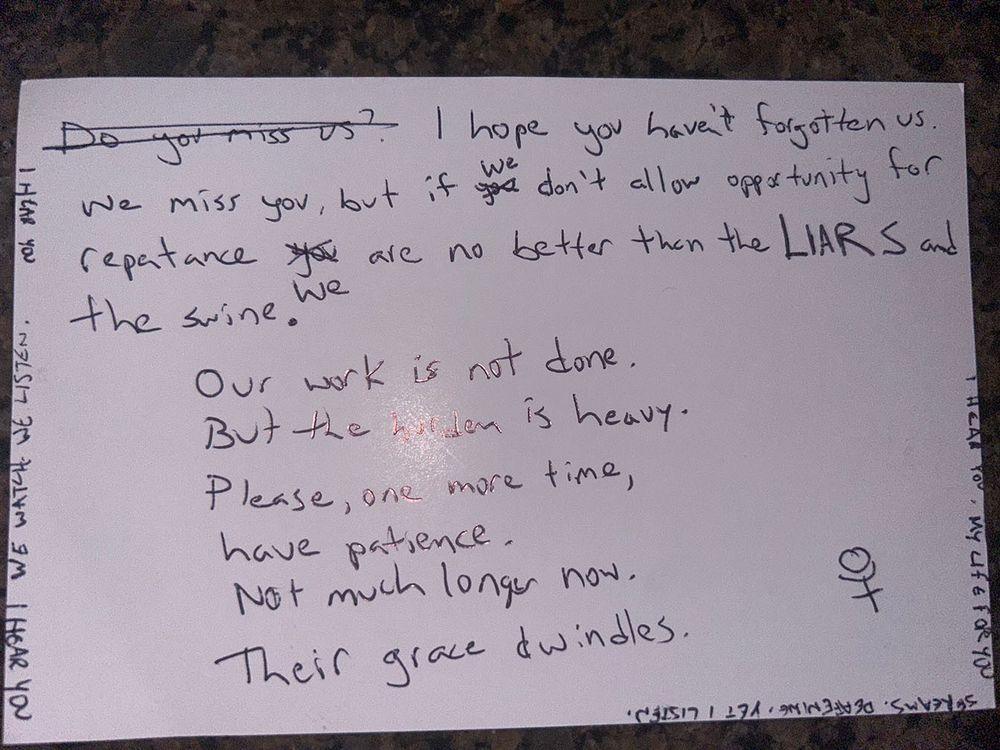 Do you miss us? I hope you haven't forgotten us.
We miss you, but if you we don't allow opportunity for
repatance you We are no better than the LIARS and
the swine.
Our work is not done.
But the burden is heavy.
Please, one more time,
have patience.
Not much longer now.
Their grace dwindles.
I HEAR YOU
I HEAR YOU. MY LIFE FOR YOU
SCREAMS. DEAFENING. YET I LISTEN.
I HEAR YOU WE WATCH WE LISTEN.